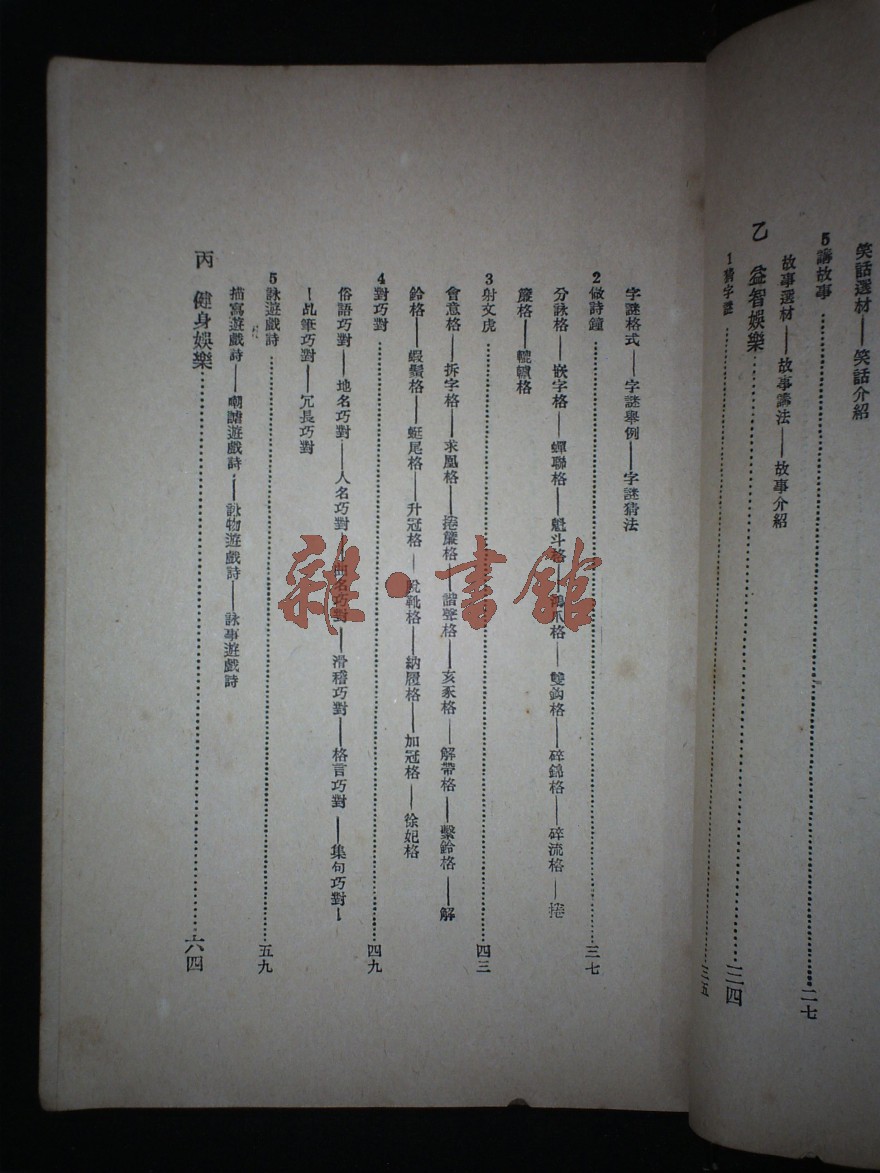 笑話選材——笑話介紹
5講故事……二七
故事選材——故事講法——故事介紹
乙 益智娛樂……三四
1猜字謎……三五
字謎格式——字謎舉例——字謎猜法
2做詩鐘……三七
分詠格——嵌字格——蟬聯格——魁斗格——爪格——雙鈎格——碎錦格——碎流格——捲
簾格——轆轤格
3射文虎……四三
會意格——拆字格——求凰格——捲簾格——諧聲格——亥豕格——解帶格——繫鈴格——解
鈴格——蝦鬚格——蜓尾格——升冠格——脫靴格——納履格——加冠格——徐妃格
4對巧對……四九
俗語巧對——地名巧對——人名巧對——曲名巧對——滑稽巧對——格言巧對——集句巧對—
—乩筆巧對——冗長巧對
5詠遊戲詩……五九
描寫遊戲詩——嘲謔遊戲詩——詠物遊戲詩——詠事遊戲詩
丙 健身娛樂……六四
雜·書館